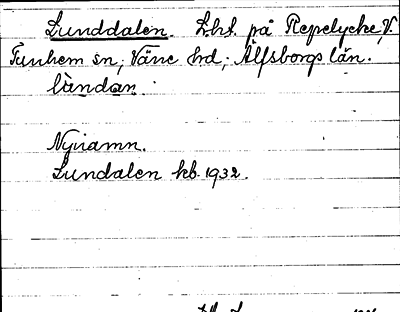 Lunddalen. Lht. på Repelycke, V.
Tunhem sn, Väne hrd, Älfsborgs län.
lùndan.
Nynamn.
Lundalen kb. 1932.